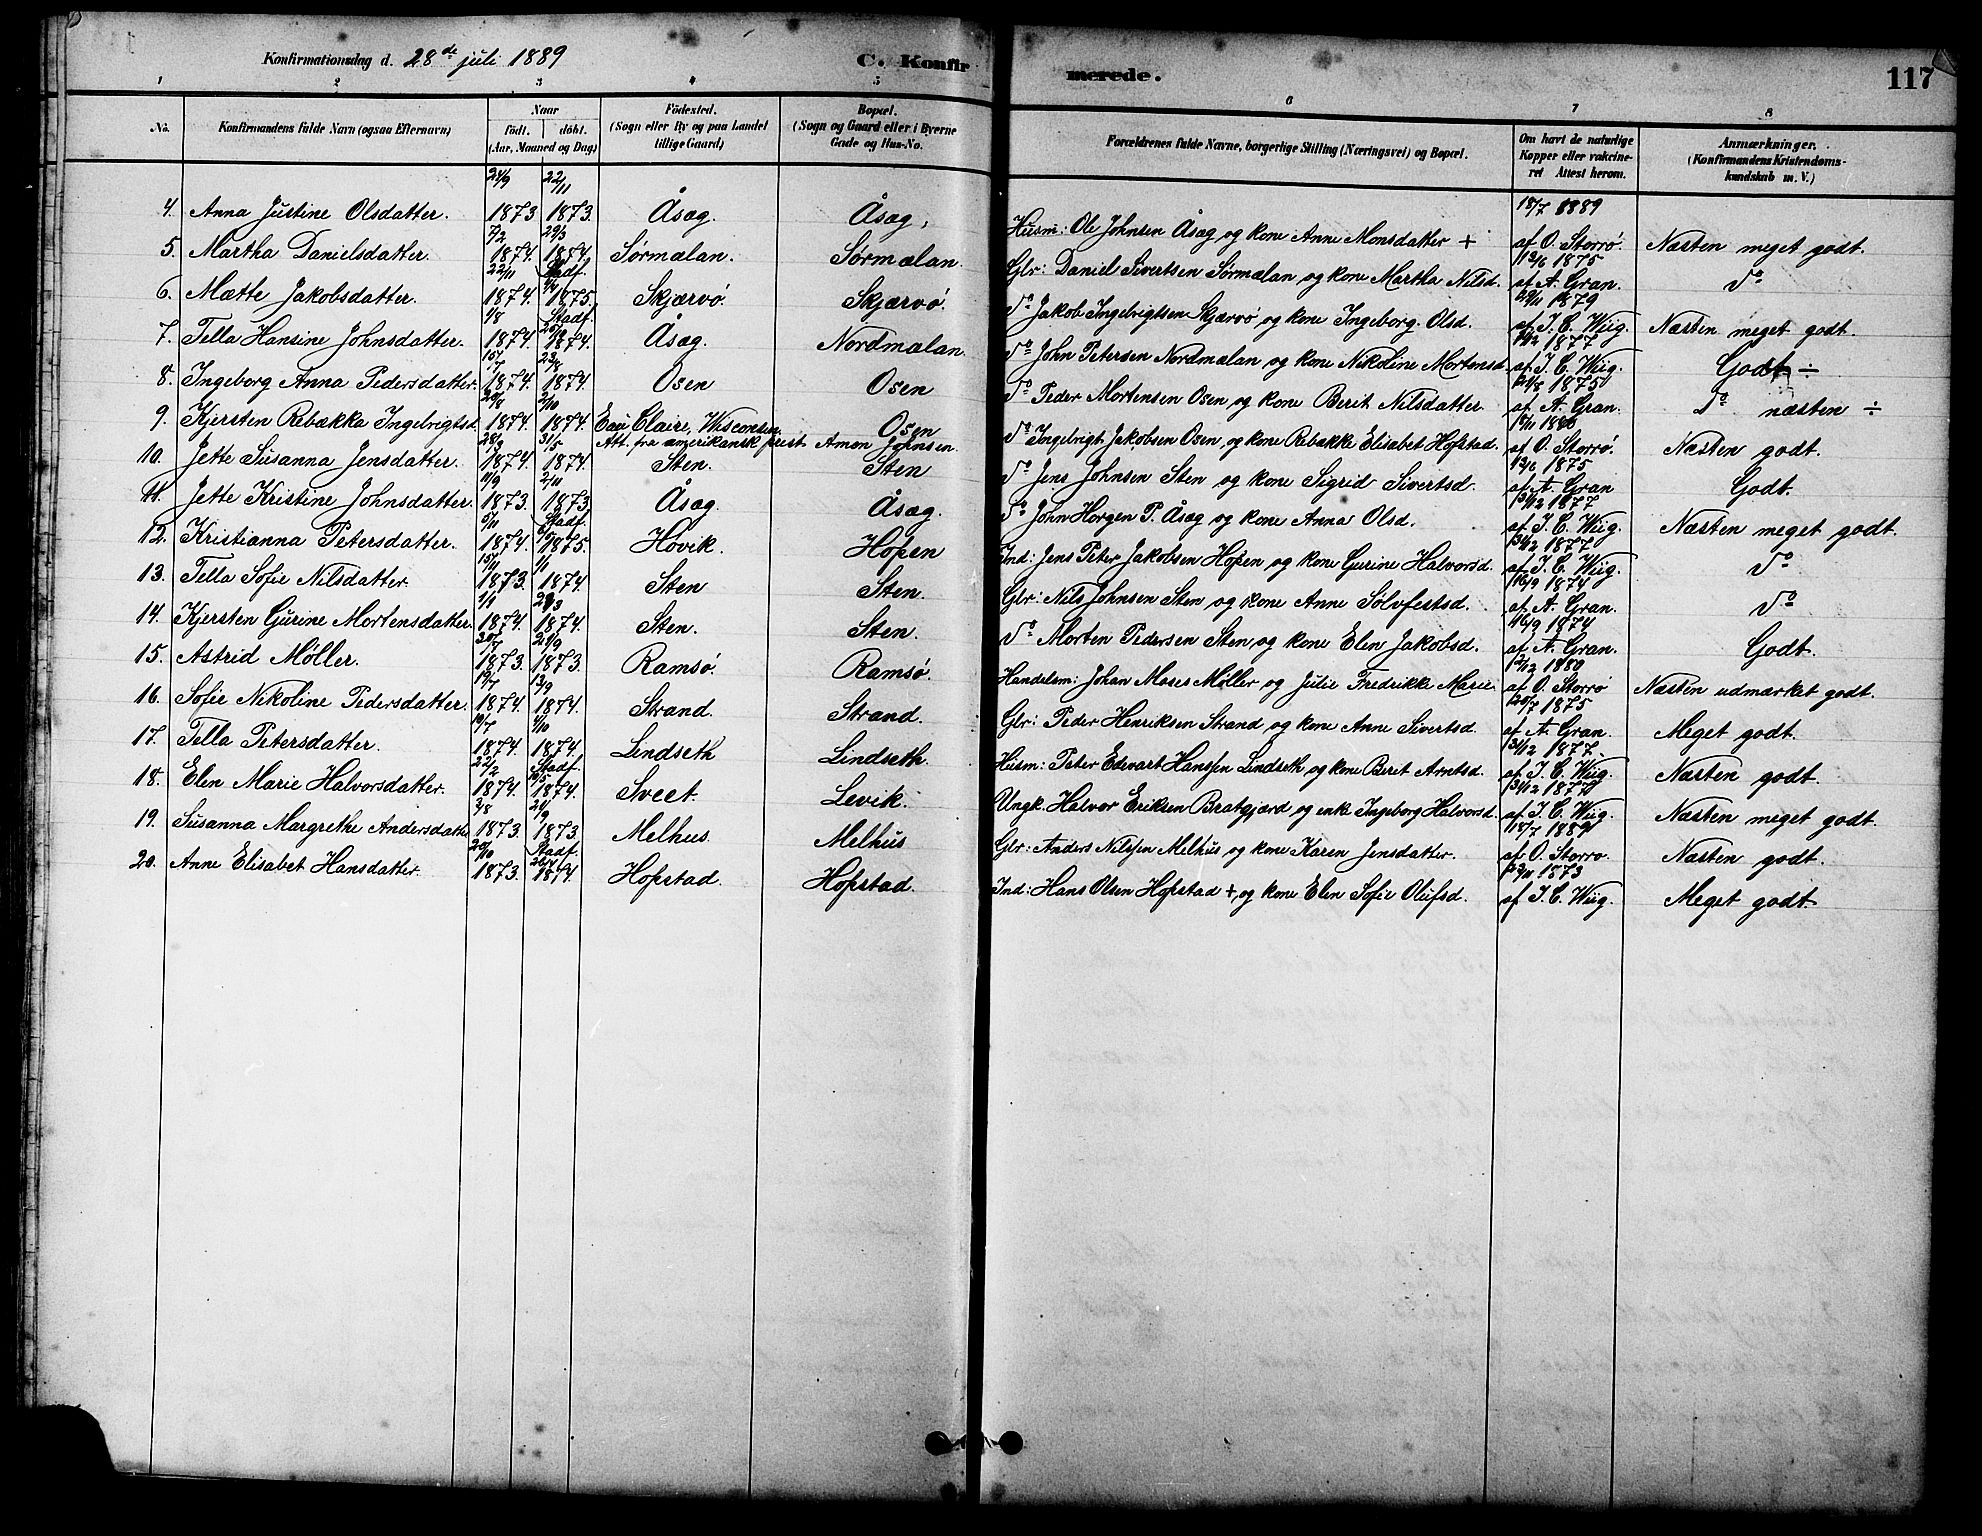 Konfirmationsdag d. 28de juli 1889 C. Konfirmerede. 117
1 2 3 4 5 6 7 8
No. Konfirmandens fulde Navn (ogsaa Efternavn) Naar födt. döbt. (Aar, Maaned og Dag) Födested. (Sogn eller By og paa Landet tillige Gaard) Bopæl. (Sogn og Gaard eller i Byerne Gade og Hus-No. Forældrenes fulde Navne, borgerlige Stilling (Næringsvei) og Bopæl. Om havt de naturlige Kopper eller vakcineret Attest herom. Anmærkninger. (Konfirmandens Kristendomskundskab m. V.)
24/9 22/11 18/7 1889
4. Anna Justine Olsdatter. 1873 1873. Åsag. Åsag. Husm: Ole Johnsen Åsag og kone Anne Monsdatter + af O. Storrö. Næsten meget godt.
7/2 29/3 12/6 1875
5. Martha Danielsdatter. 1874. 1874. Sørmælan. Sørmælan. Glr: Daniel Sivertsen Sørmælan og kone Martha Nilsd. af A. Gran. Do
22/11 Stadf. 1879
6. Mætte Jakobsdatter. 1874. 1875. Skjærvö. Skjærvö. Do Jakob Ingebrigtsen Skjærvö og kone Ingeborg Olsd. af J. C. Wiig. Næsten meget godt.
4/8 Stadf. 1877
7. Tella Hansine Johnsdatter. 1874. 1874. Åsag. Nordmælan. Do John Petersen Nordmælan og kone Nikoline Mortensd. af J. C. Wiig. Godt ÷
15/7 23/8 1875
8. Ingeborg Anna Pedersdatter. 1874. 1874. Osen Osen Do Peder Mortensen Osen og kone Berit Nilsdatter. af A. Gran. Do næsten ÷
2/10
9. Kjersten Rebækka Ingebrigtsd. 1874. 1874. Eau Claire, Wisconsen. Osen Do Ingebrigt Jakobsen Osen, og kone Rebække Elisabet Hofstad. af O. Storrö. Næsten godt.
28/2 31/5 Att. fra amerikansk prest Amon Johnsen 12/6 1875
10. Jette Susanna Jensdatter. 1874. 1874. Sten. Sten Do Jens Johnsen Sten og kone Sigrid Sivertsd. af A. Gran Godt.
11/9 2/11 31/12 1877
11. Jette Kristine Johnsdatter. 1873. 1873. Åsag. Åsag. Do John Horgen P. Åsag og kone Anna Olsd. af J. C. Wiig. Næsten meget godt.
5/11 Stadf. 31/12 1877
12. Kristianna Petersdatter. 1874. 1875. Hovik. Hopen Ind: Jens Peter Jakobsen Hopen og kone Gurine Halvorsd. af J. C. Wiig. Do
15/11 1/1 16/9 1874
13. Tella Sofie Nilsdatter. 1873. 1874. Sten Sten. Glr: Nils Johnsen Sten og kone Anne Sölvfestsd. af A. Gran. Do
1/1 16/9 1874
14. Kjersten Gurine Mortensdatter. 1874. 1874. Sten. Sten. Do Morten Pedersen Sten og kone Elen Jakobsd. af A. Gran. Godt.
30/7 21/9 12/12 1880
15. Astrid Møller. 1873. 1873. Ramsö. Ramsö. Handelsm: Johan Moses Møller og Julie Fredrikke Marie. af O. Storrö Næsten udmærket godt.
19/7 13/9 20/7 1875
16. Sofie Nikoline Pedersdatter. 1874. 1874. Strand. Strand. Glr: Peder Henriksen Strand og kone Anne Sivertsd. af A. Gran. Meget godt.
4/10 31/12 1877.
17. Tella Petersdatter. 1874. 1874. Lindseth Lindseth. Husm: Peter Edevart Hanssen Lindseth og kone Berit Arntsd. af J. C. Wiig. Næsten godt.
22/2 Stadf. 31/12 1877
18. Elen Marie Halvorsdatter. 1874. 1874. Sveet. Levik. Ungk. Halvor Eriksen Bratgjærd og enke Ingeborg Halvorsd. af J. C. Wiig. Næsten meget godt.
3/8 21/9 18/7 1889
19. Susanna Margrethe Andersdatter 1873. 1873. Melhus. Melhus Glr: Anders Nilssen Melhus og kone Karen Jensdatter. af O. Storro. Næsten godt.
20/10 Stadf. 1873
20. Anne Elisabet Hansdatter. 1873. 1874. Hofstad. Hofstad. Ind: Hans Olsen Hofstad +, og kone Elen Sofie Olufsd. af J. C. Wiig. Meget godt.